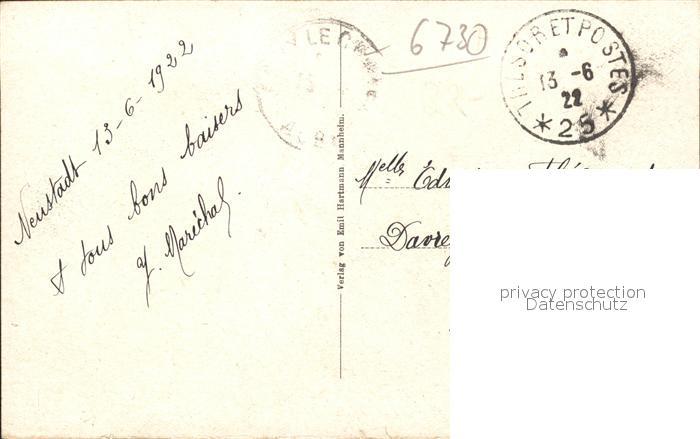 Neustadt 13-6-1922
+ tous bons baisers
y. Maréchal.
Verlag von Emil Hartmann Mannheim.
6730
TRESOR ET POSTES
13 -6
22
* 25 *
Melles
privacy protection
Datenschutz